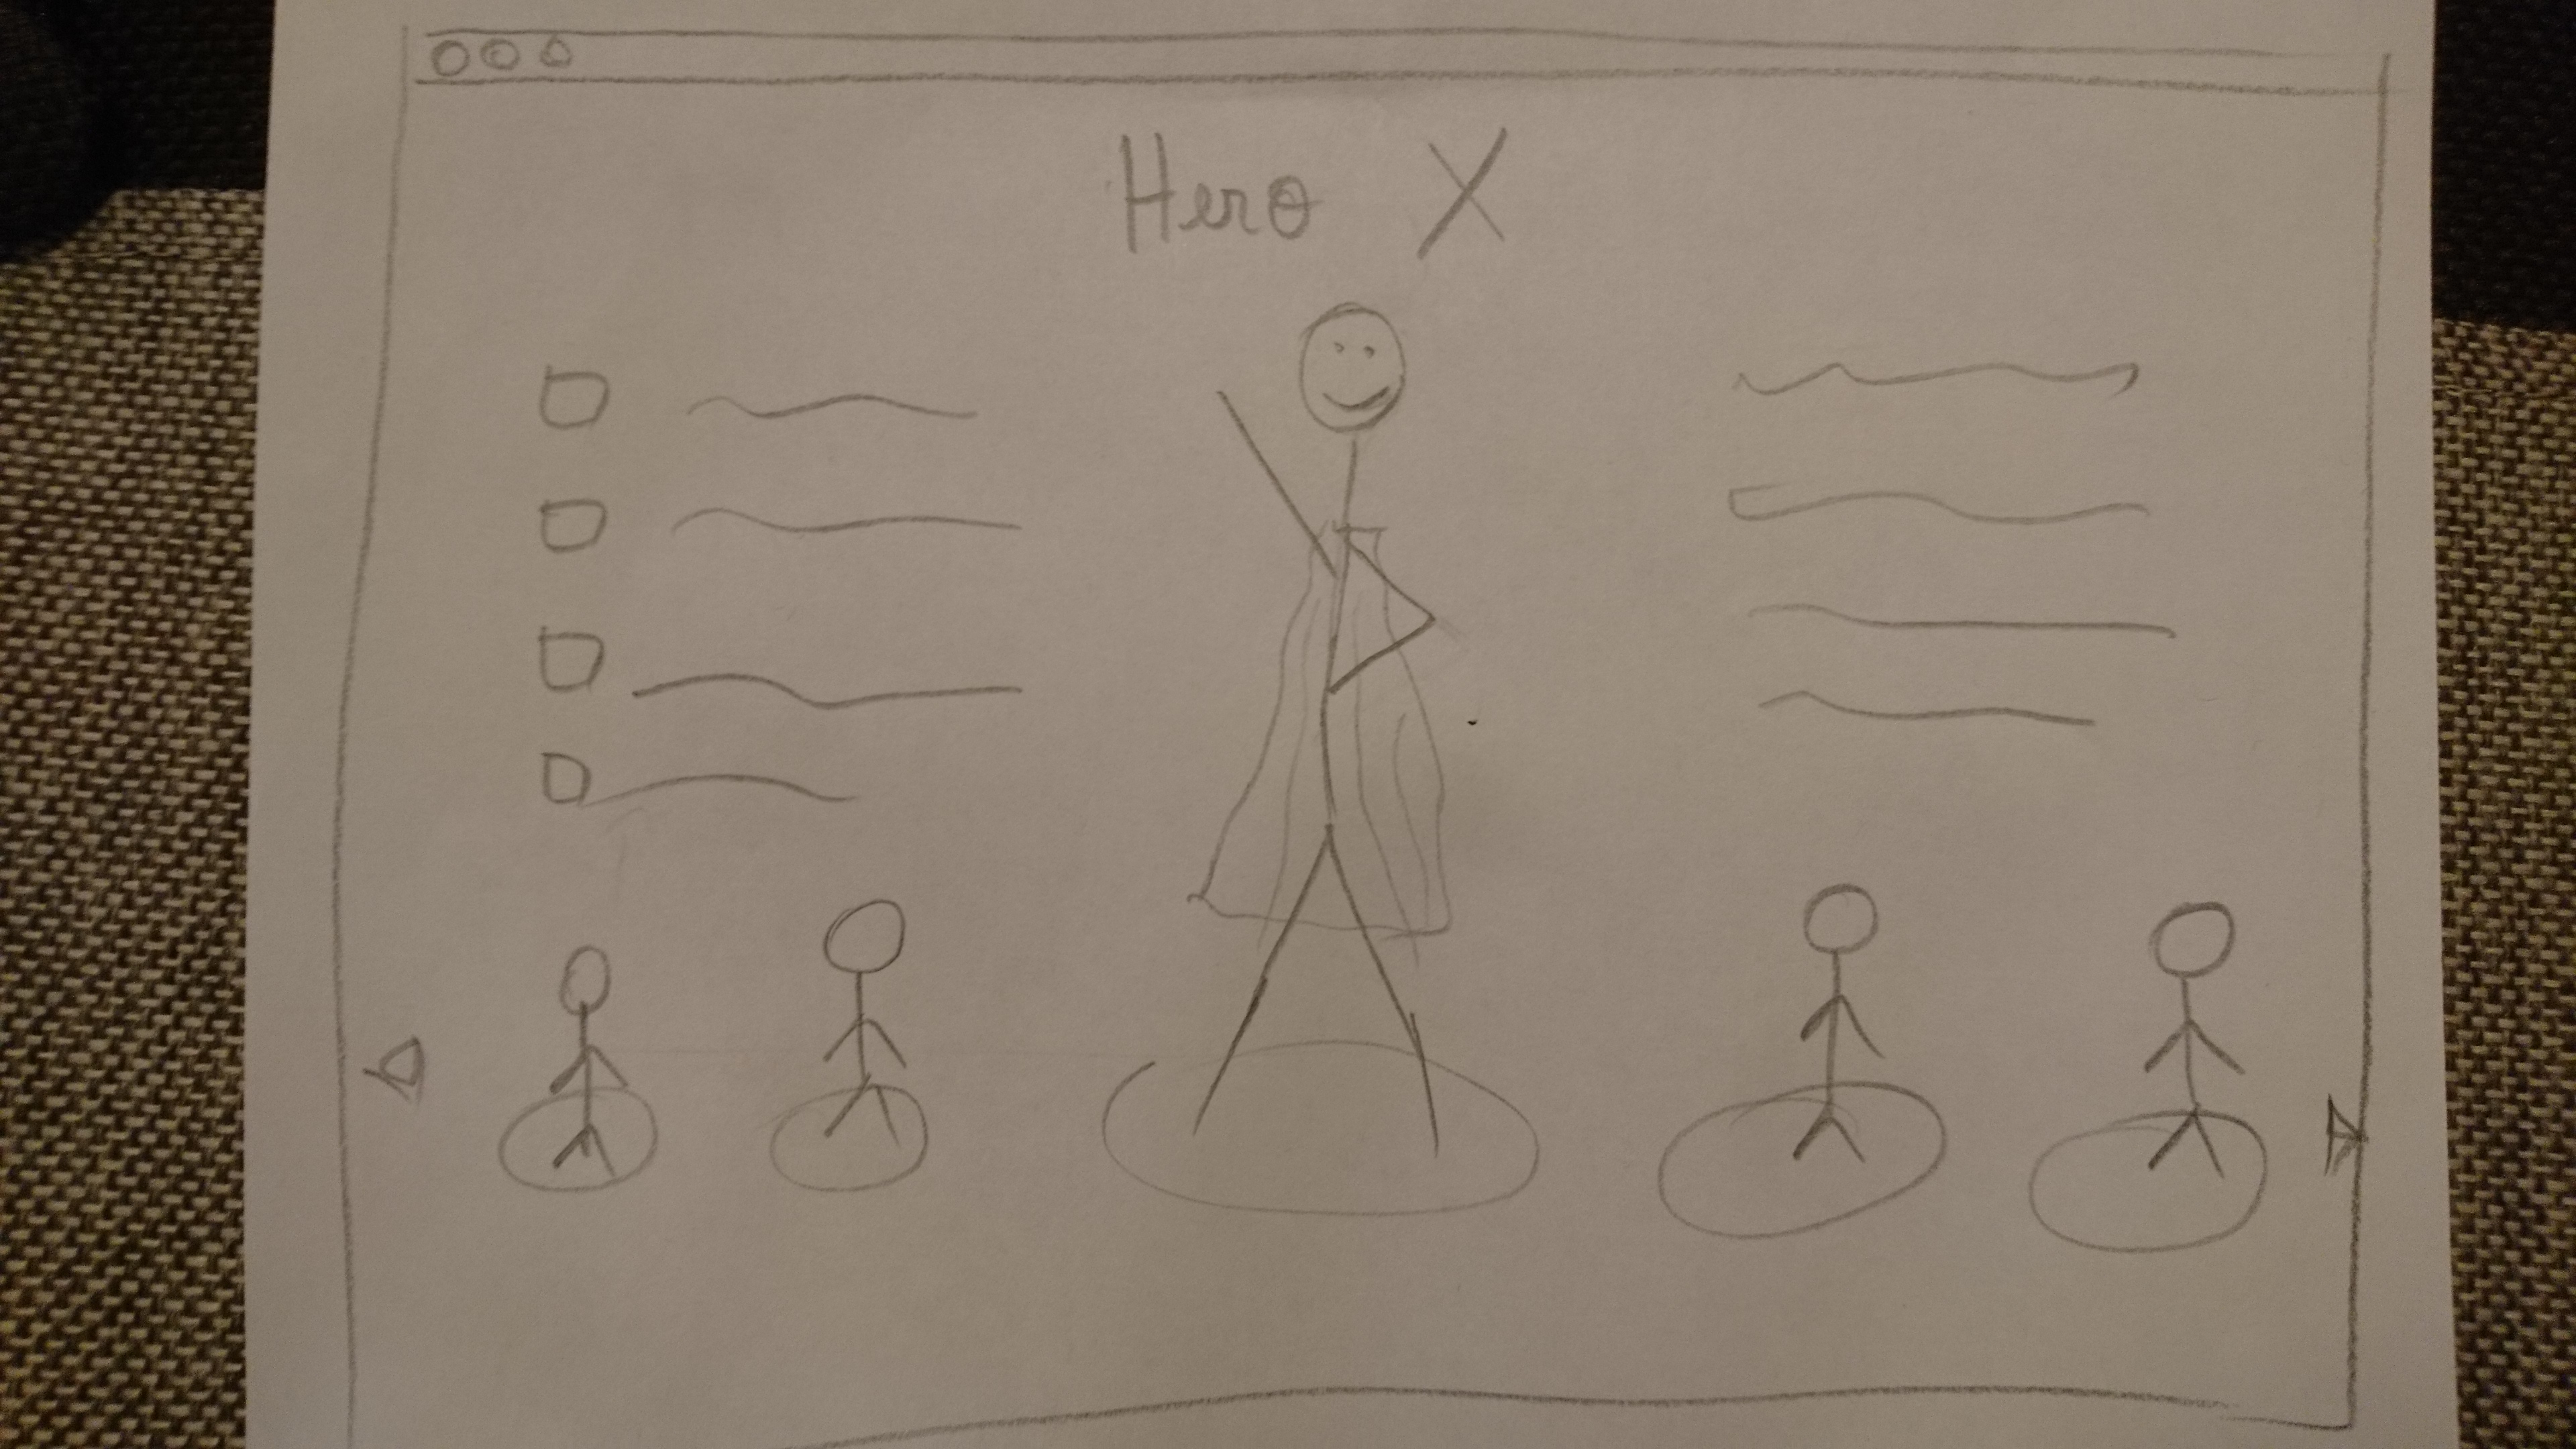 Hero X